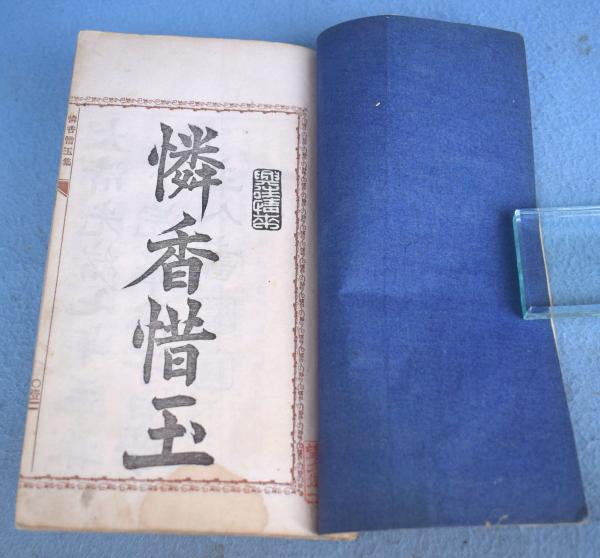 憐香惜玉
憐香惜玉集